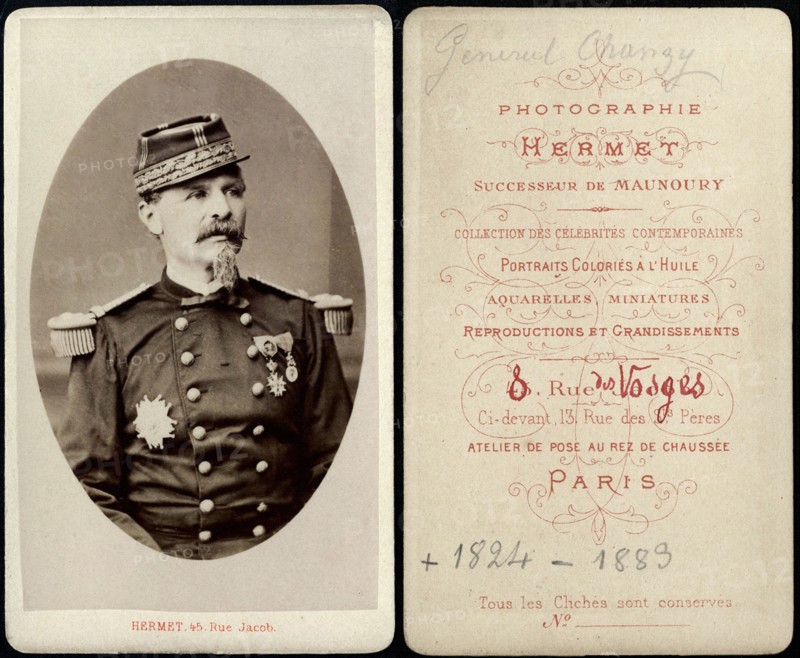 HERMET. 45. Rue Jacob.
General Chanzy
PHOTOGRAPHIE
HERMET
SUCCESSEUR DE MAUNOURY
COLLECTION DES CÉLÉBRITÉS CONTEMPORAINES
PORTRAITS COLORIÉS À L'HUILE
AQUARELLES, MINIATURES
REPRODUCTIONS ET GRANDISSEMENTS
8. Rue des Vosges
Ci-devant, 13, Rue des Sts Pères
ATELIER DE POSE AU REZ DE CHAUSSÉE
PARIS
+ 1824 - 1883
Tous les Clichés sont conservés
No
PHOTO12